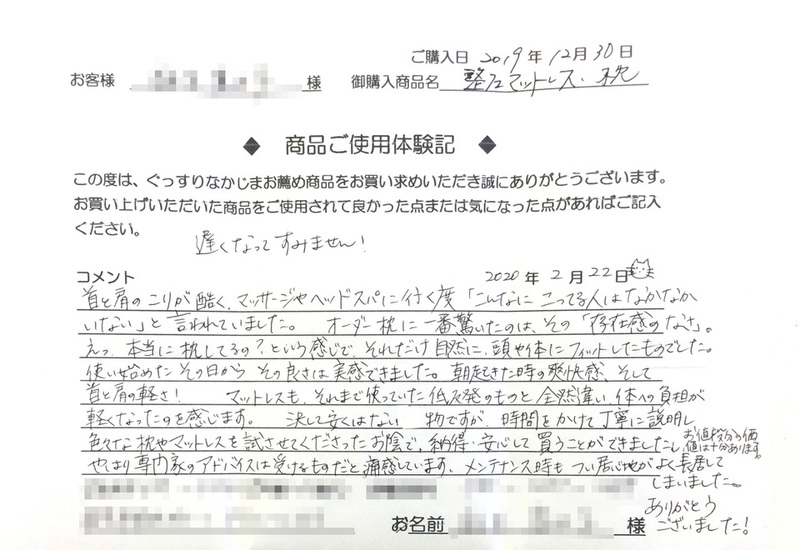 ご購入日 2019年12月30日
お客様 様 御購入商品名 整圧マットレス・枕
◆ 商品ご使用体験記 ◆
この度は、ぐっすりなかじまお薦め商品をお買い求めいただき誠にありがとうございます。
お買い上げいただいた商品をご使用されて良かった点または気になった点があればご記入
ください。
遅くなってすみません!
コメント 2020年2月22日
首と肩のこりが酷く、マッサージやヘッドスパに行く度「こんなにこってる人はなかなか
いない」と言われていました。 オーダー枕に一番驚いたのは、その「存在感のなさ」。
えっ、本当に枕してるの?という感じで、それだけ自然に、頭や体にフィットしたものでした。
使い始めたその日から その良さは実感できました。朝起きた時の爽快感、そして
首と肩の軽さ! マットレスも、それまで使っていた低反発のものと全然違い、体への負担が
軽くなったのを感じます。 決して安くはない 物ですが、時間をかけて丁寧に説明し
色々な枕やマットレスを試させてくださったお陰で、納得・安心して買うことができましたし
お値段分の価
値は十分あります。
やっぱり専門家のアドバイスは受けるものだと痛感しています、メンテナンス時も つい居心地がよく長居して
しまいました。
ありがとう
ございました!
お名前 様